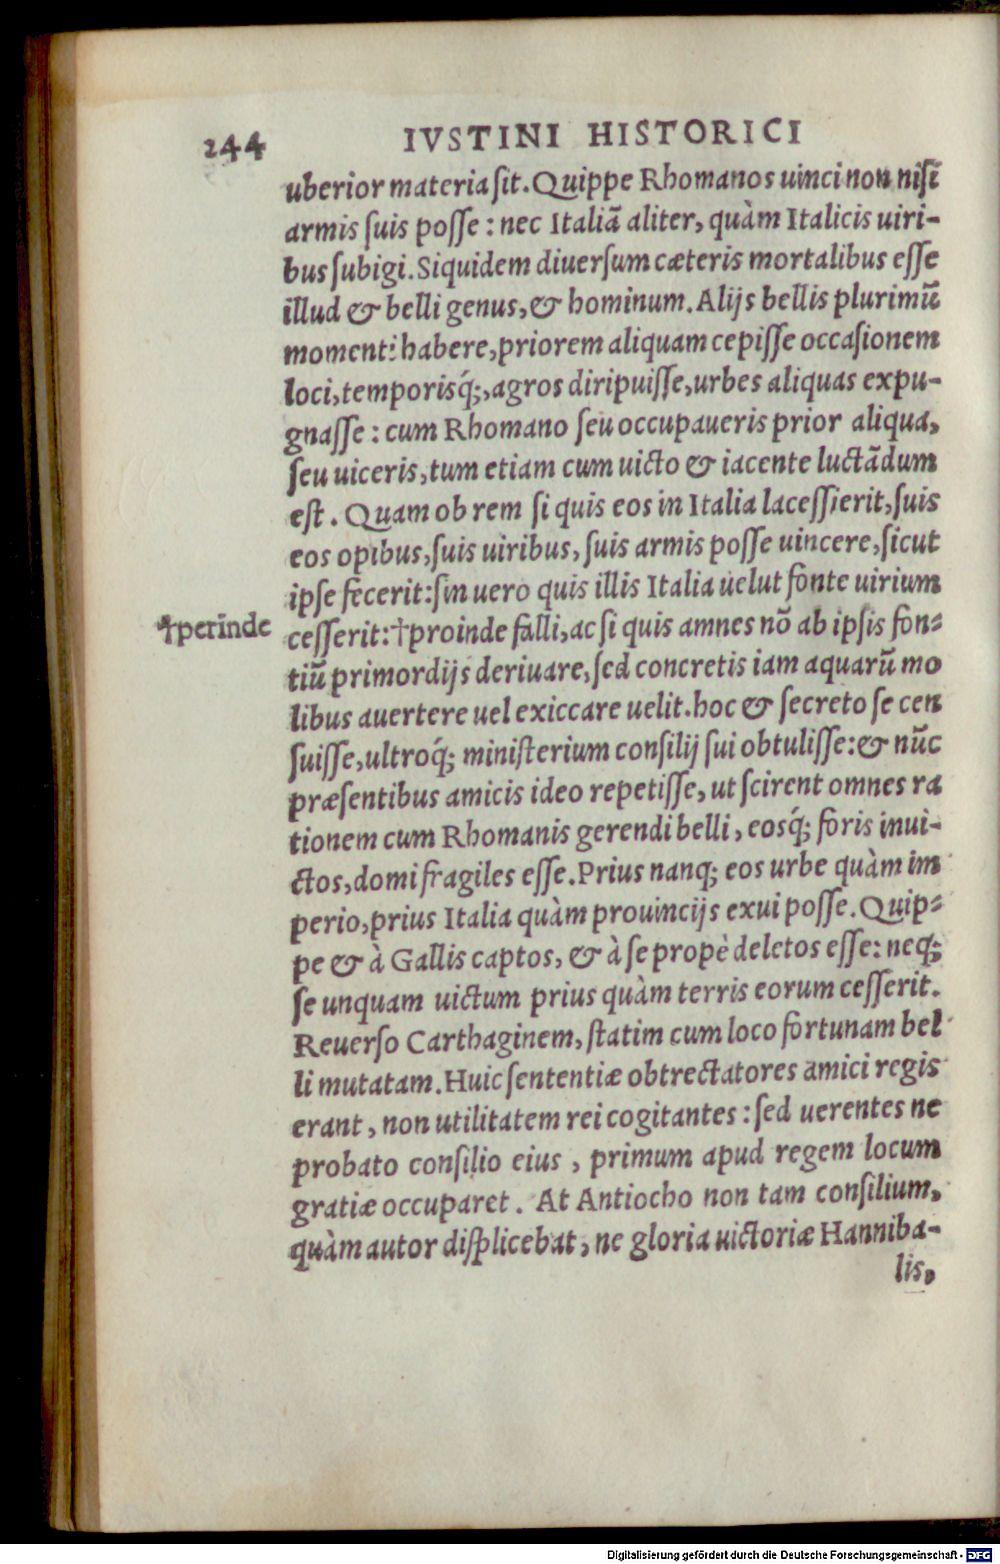 244 IVSTINI HISTORICI
uberior materia ſit. Quippe Rhomanos uinci non niſi
armis ſuis poſſe: nec Italiã aliter, quàm Italicis uiri-
bus ſubigi. Siquidem diuerſum cæteris mortalibus eſſe
illud & belli genus, & hominum. Alijs bellis plurimũ
momenti habere, priorem aliquam cepiſſe occaſionem
loci, temporisq́;, agros diripuiſſe, urbes aliquas expu-
gnaſſe: cum Rhomano ſeu occupaueris prior aliqua,
ſeu uiceris, tum etiam cum uicto & iacente luctãdum
eſt. Quam ob rem ſi quis eos in Italia laceſſierit, ſuis
eos opibus, ſuis uiribus, ſuis armis poſſe uincere, ſicut
ipſe fecerit: ſin uero quis illis Italia uelut fonte uirium
†perinde ceſſerit: †proinde falli, ac ſi quis amnes nõ ab ipſis fon-
tiũ primordijs deriuare, ſed concretis iam aquarũ mo
libus auertere uel exiccare uelit. hoc & ſecreto ſe cen
ſuiſſe, ultroq́; miniſterium conſilij ſui obtuliſſe: & nũc
præſentibus amicis ideo repetiſſe, ut ſcirent omnes ra
tionem cum Rhomanis gerendi belli, eosq́; foris inui-
ctos, domi fragiles eſſe. Prius nanq; eos urbe quàm im
perio, prius Italia quàm prouincijs exui poſſe. Quip-
pe & à Gallis captos, & à ſe propè deletos eſſe: neq;
ſe unquam uictum prius quàm terris eorum ceſſerit.
Reuerſo Carthaginem, ſtatim cum loco fortunam bel
li mutatam. Huic ſententiæ obtrectatores amici regis
erant, non utilitatem rei cogitantes: ſed uerentes ne
probato conſilio eius, primum apud regem locum
gratiæ occuparet. At Antiocho non tam conſilium,
quàm autor diſplicebat, ne gloria uictoriæ Hanniba-
lis,
Digitalisierung gefördert durch die Deutsche Forschungsgemeinschaft - DFG